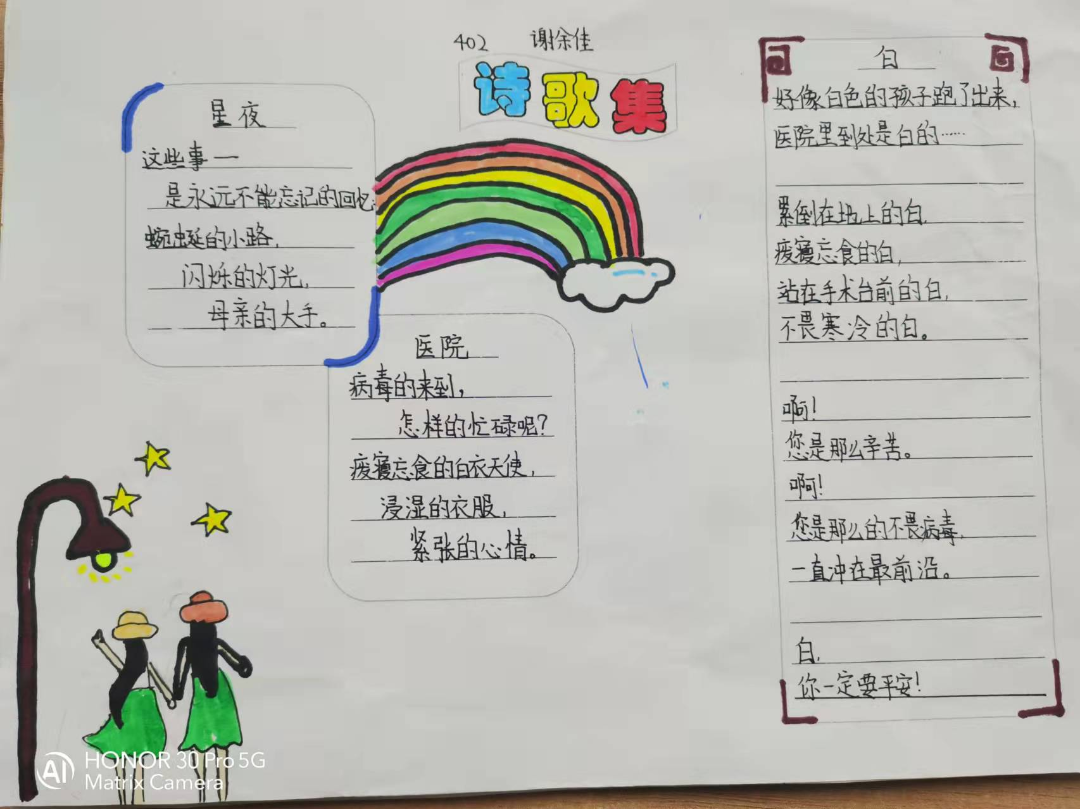 402 谢余佳
诗歌集
星夜
这些事—
是永远不能忘记的回忆:
蜿蜒的小路,
闪烁的灯光,
母亲的大手。
医院
病毒的来到,
怎样的忙碌呢?
疲寝忘食的白衣天使,
浸湿的衣服,
紧张的心情。
白
好像白色的孩子跑了出来,
医院里到处是白的……
累倒在地上的白,
疲寝忘食的白,
站在手术台前的白,
不畏寒冷的白。
啊!
您是那么辛苦。
啊!
您是那么的不畏病毒,
一直冲在最前沿。
白,
你一定要平安!
AI HONOR 30 Pro 5G
Matrix Camera